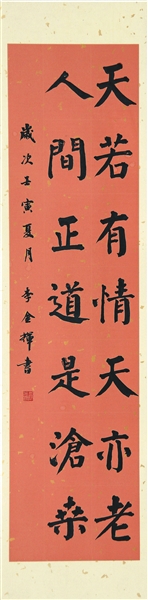 天若有情天亦老
人間正道是滄桑
歲次壬寅夏月 李金擇書